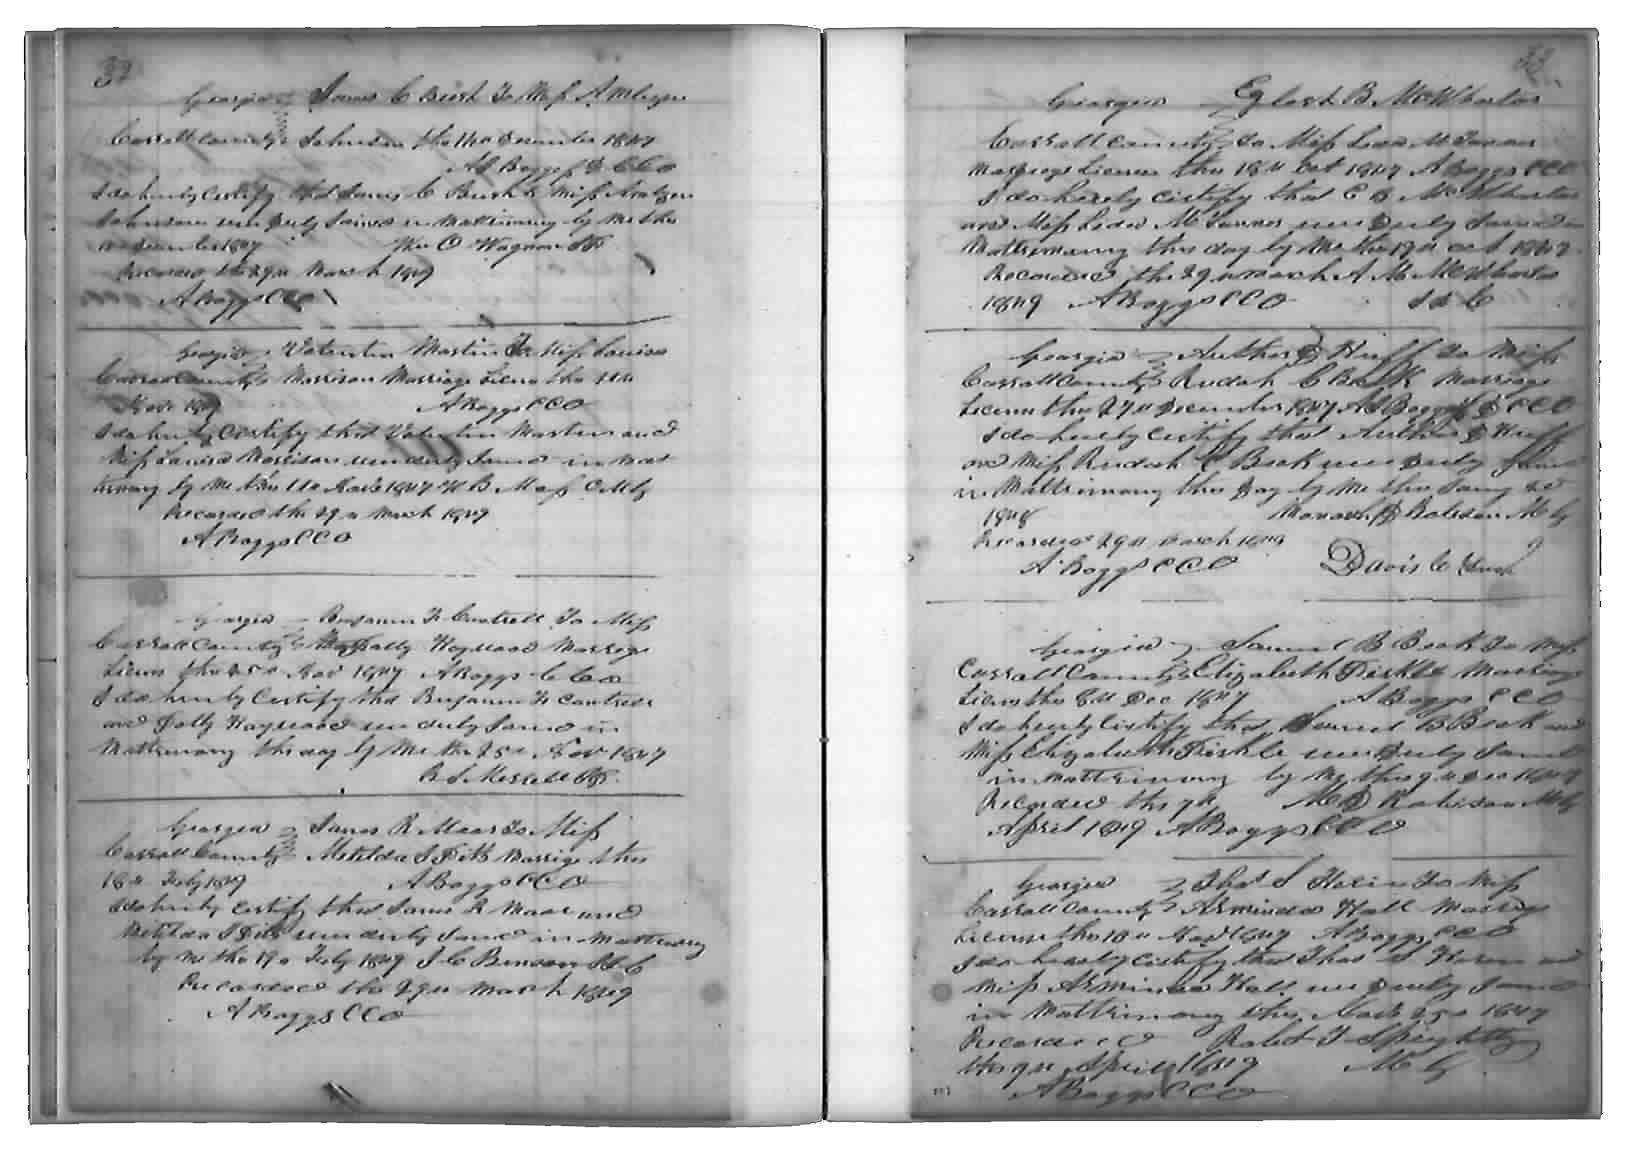 32
Georgia James C Bush To Miss
Carroll County Johnson the 14th December 1847
A Boggs D C C O
I do hereby certify that James C Bush & Miss
Johnson were duly Joined in Matrimony by me this
December 1847 Wm O Wagnon
Recorded the 29th March 1849
A Boggs CCO
Georgia Valentin Martin To Miss Louisa
Carroll County Morrison Marriage License this
Novr 1847 A Boggs CCO
I do hereby Certify that Valentin Martin and
Miss Louisa Morrison were duly Joined in Mat
rimony by me this 11th Novr 1847 W B Moss O M G
Recorded the 29th March 1849
A Boggs CCO
Georgia Benjamin F Cantrell To Miss
Carroll County Dolly Haywood Marriage
License this 25th Nov 1847 A Boggs C C O
I do hereby Certify that Benjamin F Cantrell
and Dolly Haywood were duly Joined in
Matrimony this day by me the 25th Novr 1847
Merrell
Georgia James R Moor To Miss
Carroll County Matilda S Pitts Marrige this
18th Feby 1849 A Boggs CCO
I do hereby certify that James R Moor and
Matilda S Pitts were duly Joined in Matrimony
by me the 19th Feby 1849 J C Benson
Recorded the 29th March 1849
A Boggs CCO
33
Georgia B McWhorter
Carroll County To Miss
Marriage License this 18th Oct 1847 A Boggs CCO
I do hereby certify that E B McWhorter
and Miss were Duly Joined in
Matrimony this day by me this 19th Oct 1847
Recorded the 29th March A M McWhorter
1849 A Boggs CCO J I C
Georgia Huff To Miss
Carroll County Rudah C Beck Marriage
License this 27th December 1847 A Boggs D CCO
I do hereby Certify that Huff
and Miss Rudah C Beck were Duly Joined
in Matrimony this Day by me this Jany 2d
1848 Robison M G
Recorded 29th March 1849
A Boggs CCO Davis C
Georgia Samuel B Beck To Miss
Carroll County Elizabeth Marriage
License this 6th Dec 1847 A Boggs CCO
I do hereby Certify that Samuel B Beck and
Miss Elizabeth were Duly Joined
in Matrimony by me this 9th Dec 1847
Recorded this 9th M D Robison M G
April 1849 A Boggs CCO
Georgia Thos S To Miss
Carroll County Arminda Hall Marrige
License this 18th Novr 1847 A Boggs CCO
I do hereby certify that Thos S and
Miss Arminda Hall were duly Joined
in Matrimony this Novr 25th 1847
Recorded Robt T Speights
this 9th April 1849 M G
A Boggs CCO